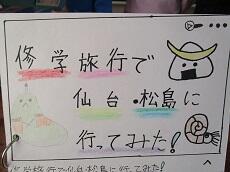 修学旅行で
仙台・松島に
行ってみた!
修学旅行で仙台松島に行ってみた!